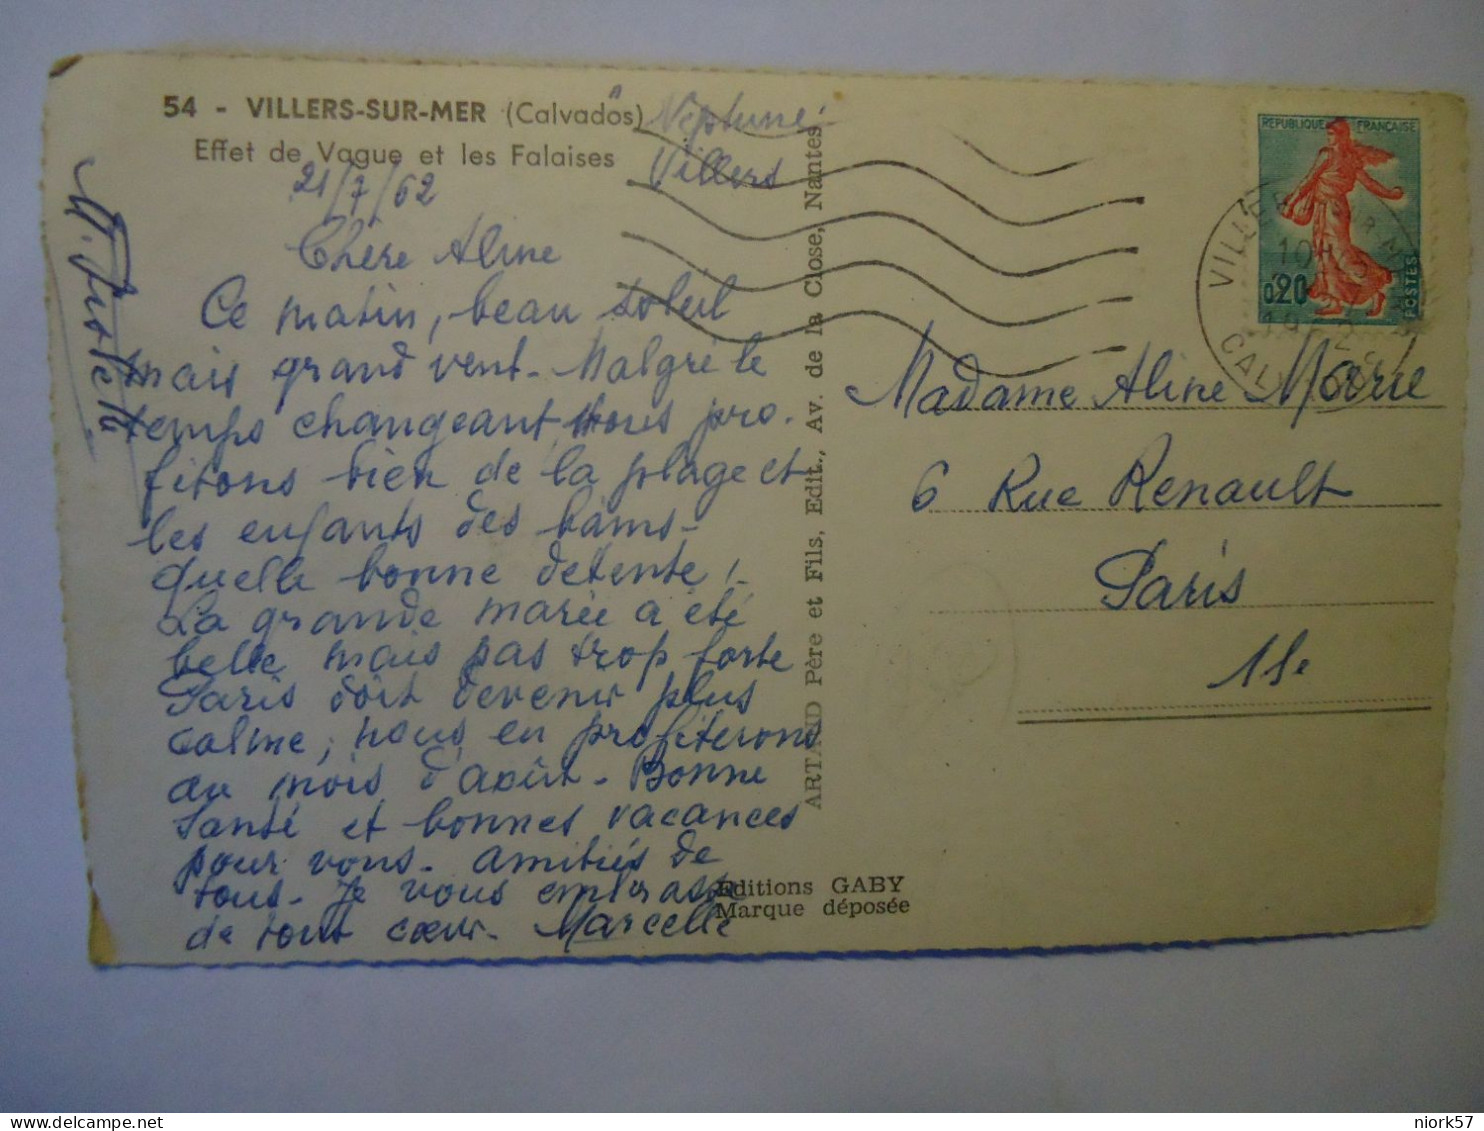 54 - VILLERS-SUR-MER (Calvados)
Effet de Vague et les Falaises
"Neptune"
Villers
21/7/62
Chère Aline
Ce matin, beau soleil
mais grand vent. Malgré le
temps changeant, nous pro-
fitons bien de la plage et
les enfants des bains-
quelle bonne detente!
La grande marée a été
belle mais pas trop forte
Paris doit devenir plus
calme, nous en profiterons
au mois d'août - Bonne
Santé et bonnes vacances
pour vous. amitiés de
tous. Je vous embrasse
de tout cœur. Marcelle
ARTAUD Père et Fils, Edit., Av. de la Close, Nantes
Editions GABY
Marque déposée
REPUBLIQUE FRANÇAISE
0,20
POSTES
10H
Madame Aline Marie
6 Rue Renault
Paris
11e
niork57